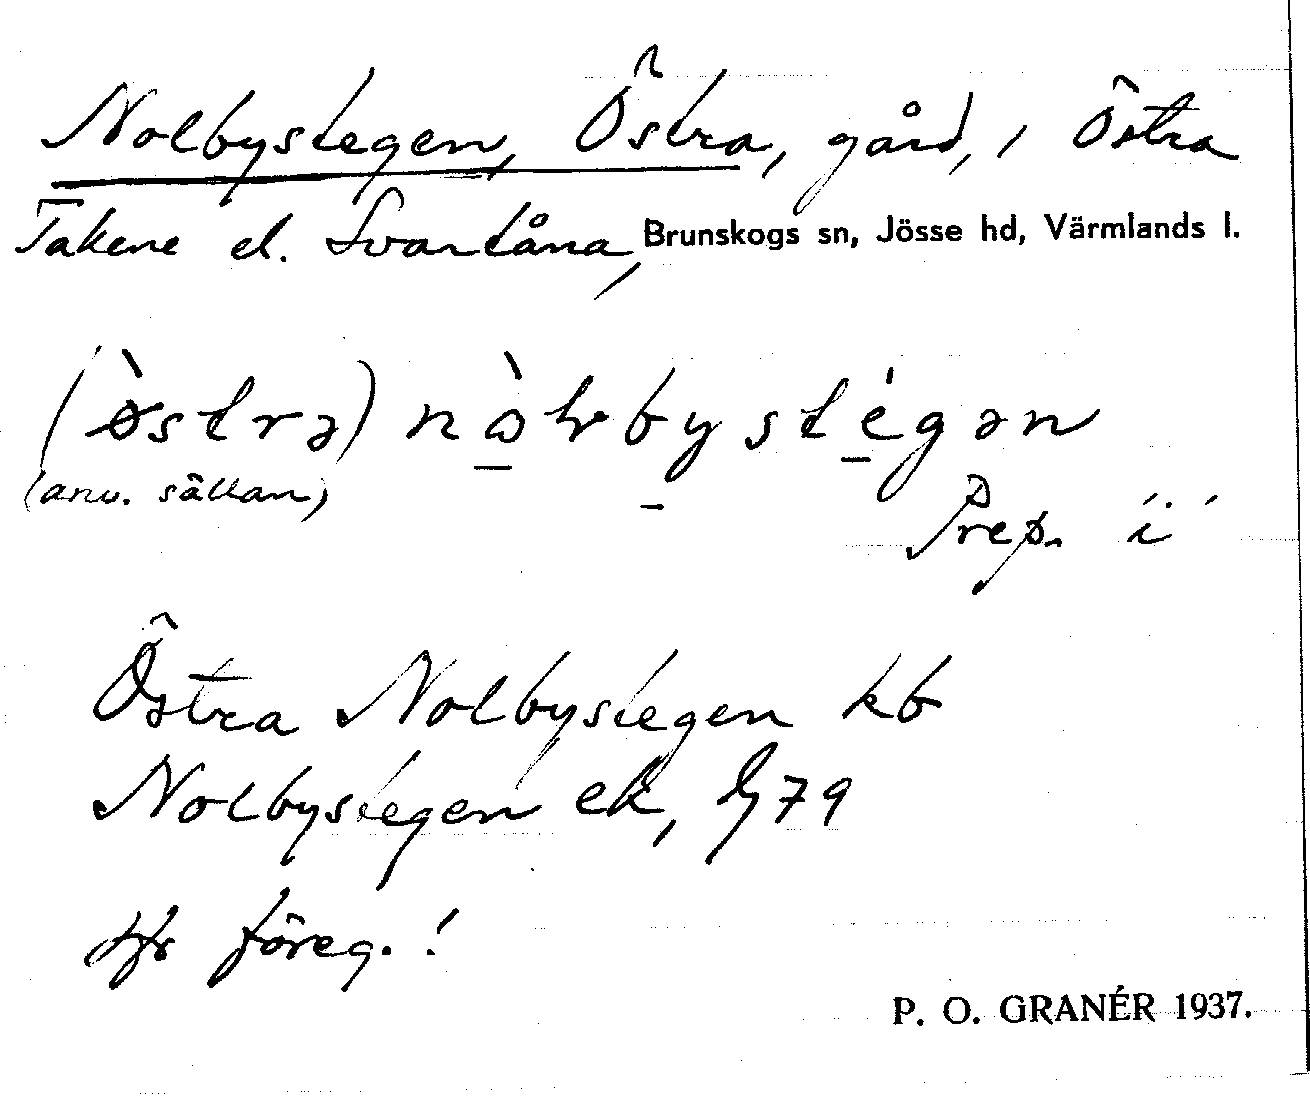 Nolbystegen, Östra, gård, i Östra
Takene el. Svartåna, Brunskogs sn, Jösse hd, Värmlands l.
(østrə) nɷlbystégən
(anv. sällan)
Prep. i
Östra Nolbystegen kb
Nolbystegen ek, 79
Jfr föreg.!
P. O. GRANÉR 1937.